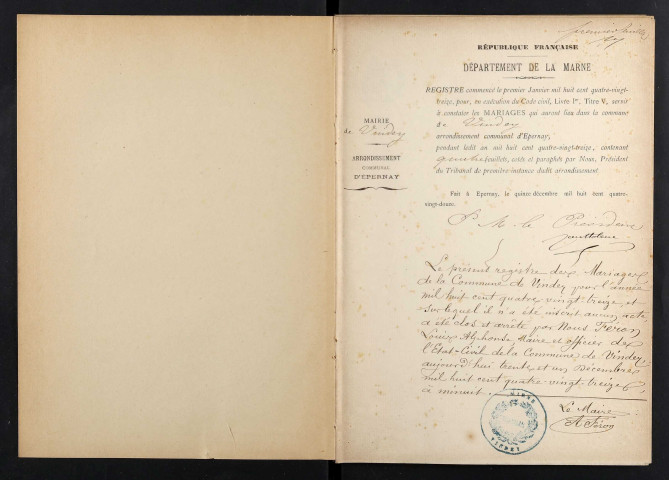 premier feuillet
RÉPUBLIQUE FRANÇAISE
DÉPARTEMENT DE LA MARNE
MAIRIE
de Vindey
ARRONDISSEMENT
COMMUNAL
D'ÉPERNAY
REGISTRE commencé le premier Janvier mil huit cent quatre-vingt-
treize, pour, en exécution du Code civil, Livre Ier, Titre V, servir
à constater les MARIAGES qui auront lieu dans la commune
de Vindey
arrondissement communal d'Epernay;
pendant ledit an mil huit cent quatre-vingt-treize, contenant
feuillets, cotés et paraphés par Nous, Président
du Tribunal de première instance dudit arrondissement.
Fait à Epernay, le quinze décembre mil huit cent quatre-
vingt-douze.
Pr M. le Président
Le présent registre des Mariages
de la Commune de Vindey pour l'année
mil huit cent quatre vingt-treize et
sur lequel il n'a été inscrit aucun acte
a été clos et arrêté par Nous Féron
Louis Alphonse, Maire et officier de
l'Etat-Civil de la Commune de Vindey
aujourd'hui trente et un Décembre
mil huit cent quatre-vingt-treize,
à minuit.
Le Maire
A Féron
MAIRIE
VINDEY